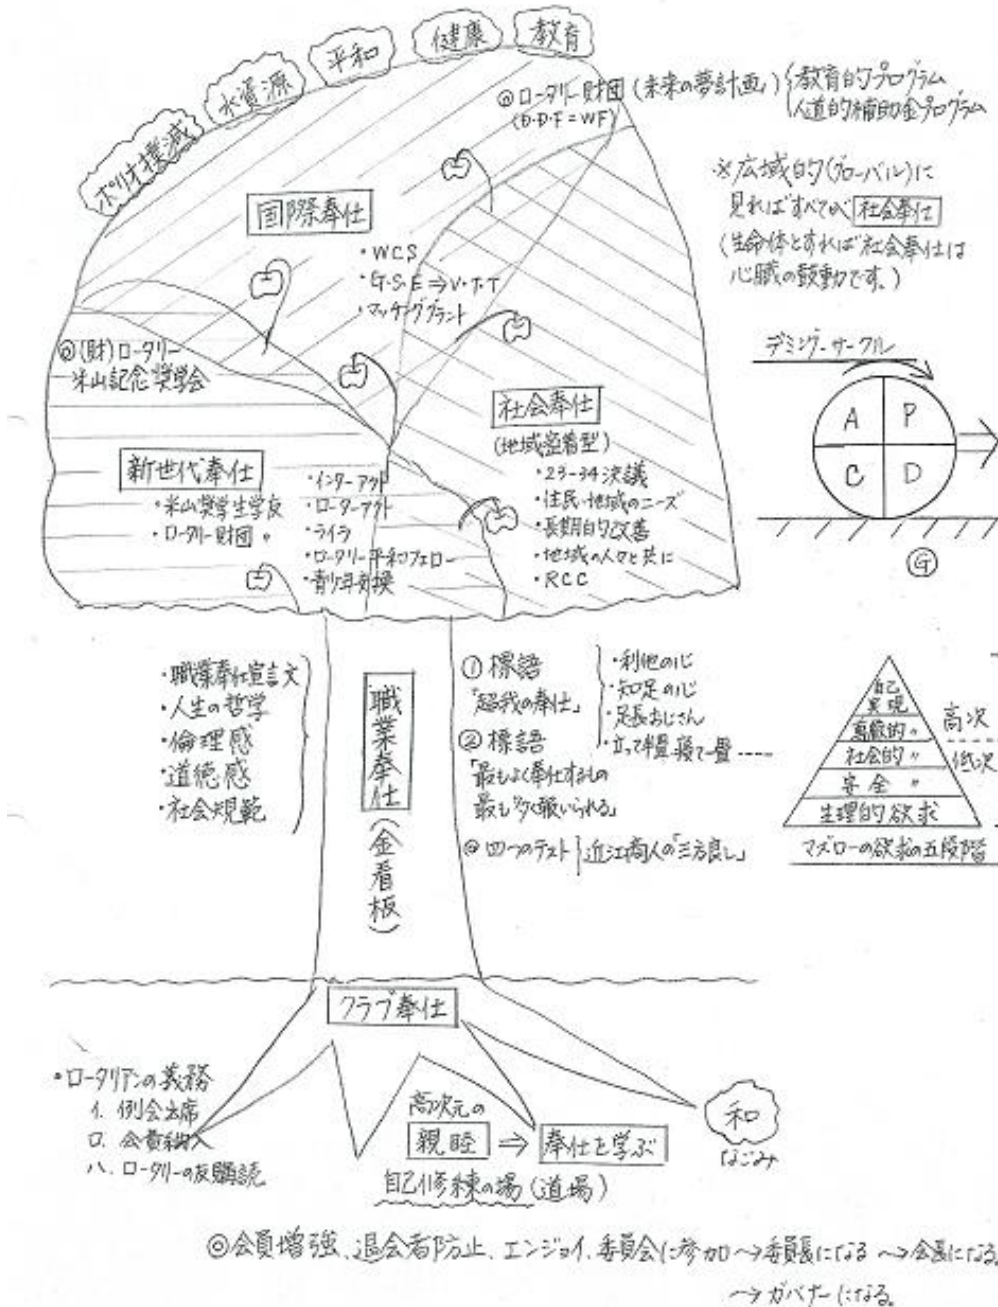 教育
健康
平和
水資源
ポリオ撲滅
◎ロータリー財団(未来の夢計画)
(D・D・F=WF)
教育的プログラム
人道的補助金プログラム
※広域的(グローバル)に
見ればすべてが社会奉仕
(生命体とすれば社会奉仕は
心臓の鼓動です。)
国際奉仕
・WCS
・G・S・E⇒V・T・T
・マッチンググラント
◎(財)ロータリー
米山記念奨学会
デミングサークル
A P
C D
G
社会奉仕
(地域密着型)
・23-34決議
・住民・地域のニーズ
・長期的改善
・地域の人々と共に
・RCC
新世代奉仕
・米山奨学生学友
・ロータリー財団 〃
・インターアクト
・ローターアクト
・ライラ
・ロータリー平和フェロー
・青少年交換
・職業奉仕宣言文
・人生の哲学
・倫理感
・道徳感
・社会規範
職業奉仕(金看板)
① 標語
「超我の奉仕」
② 標語
「最もよく奉仕するもの
最も多く報いられる」
◎四つのテスト
近江商人の「三方良し」
・利他の心
・知足の心
・足長おじさん
・立って半畳・寝て一畳
自己
実現
尊厳的〃
社会的〃
安全 〃
生理的欲求
高次
低次
マズローの欲求の五段階
クラブ奉仕
・ロータリアンの義務
イ. 例会出席
ロ. 会費納入
ハ. ロータリーの友購読
高次元の
親睦⇒奉仕を学ぶ
自己修練の場(道場)
和
なごみ
◎会員増強、退会者防止、エンジョイ、委員会に参加→委員長になる→会長になる。
→ガバナーになる。